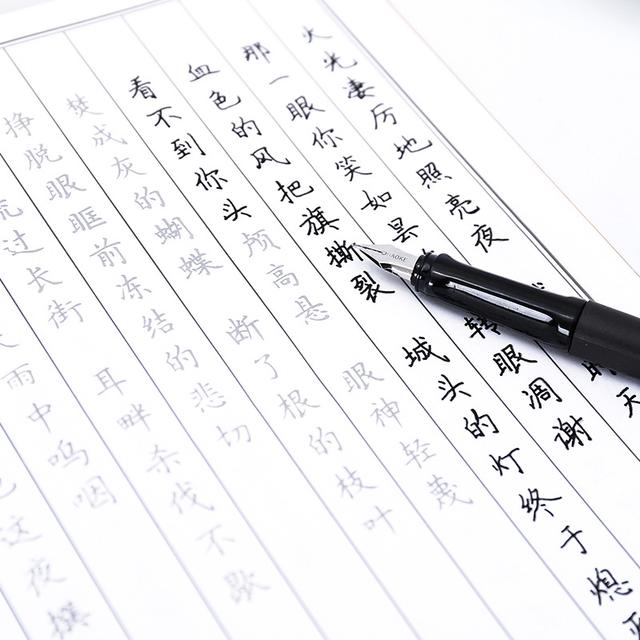 火光凄厉地照亮夜 天
那一眼你笑如昙 转眼凋谢
血色的风把旗撕裂 城头的灯终于熄
看不到你头颅高悬 眼神轻蔑
焚成灰的蝴蝶 断了根的枝叶
挣脱眼眶前冻结的悲切
流过长街 耳畔杀伐不歇
雨中呜咽
这夜